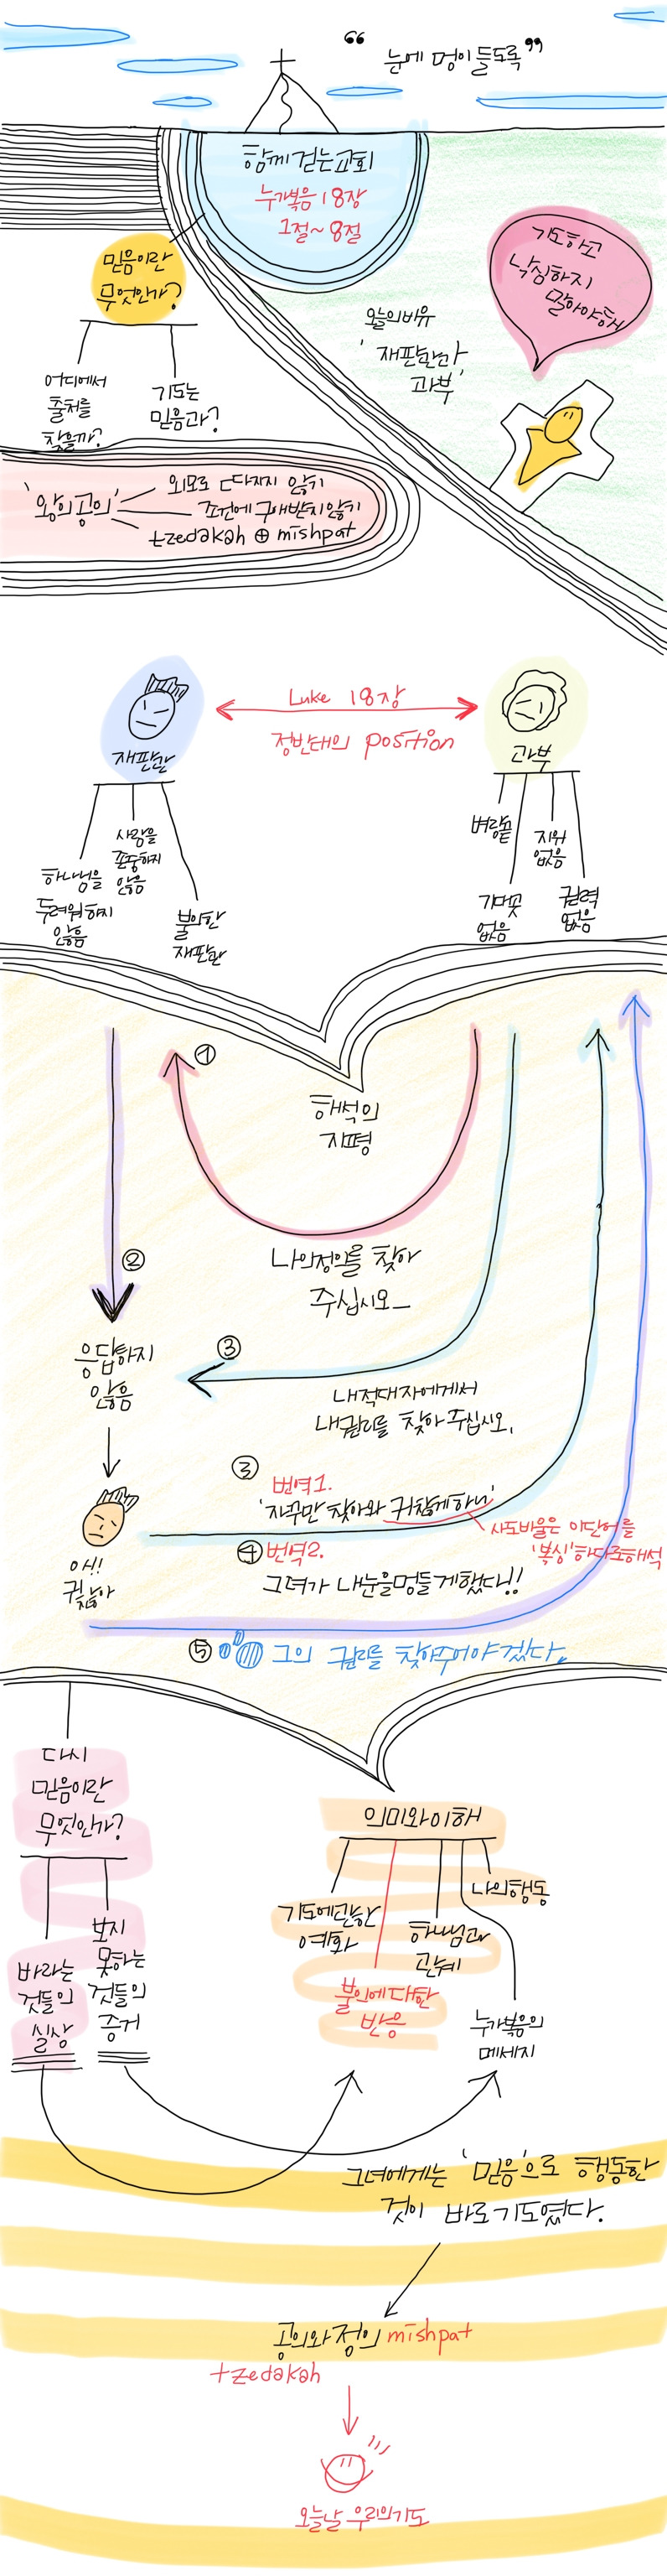 “ 눈에 멍이 들도록 ”
함께 걷는 교회
누가복음 18장
1절~8절
믿음이란
무엇인가?
어디에서
출처를
찾을까?
기도는
믿음과?
기도하고
낙심하지
말아야해
오늘의 비유
'재판관과
과부'
'왕의 공의'
외모로 다다지 않기
조건에 구애받지 않기
tzedakah ⊕ mishpat
Luke 18장
정반대의 position
재판관
하나님을
두려워하지
않음
사람을
존중하지
않음
불의한
재판관
과부
벼랑끝
기댈곳
없음
지위
없음
권력
없음
해석의
지평
①
나의 정의를 찾아
주십시오_
②
응답하지
않음
③
내 적대자에게서
내 권리를 찾아 주십시오.
아씨!!
귀찮아
③
번역1.
'자꾸만 찾아와 귀찮게 하니'
사도바울은 이 단어를
'복싱'하다로 해석
④ 번역2.
그녀가 내 눈을 멍들게했다!!
⑤ 그의 권리를 찾아주어야겠다.
다시
믿음이란
무엇인가?
바라는
것들의
실상
보지
못하는
것들의
증거
의미와 이해
기도에 관한
예화
불의에 대한
반응
하나님과
관계
누가복음의
메세지
나의 행동
그녀에게는 '믿음'으로 행동한
것이 바로 기도였다.
공의와 정의 mishpat
tzedakah
오늘날 우리의 기도